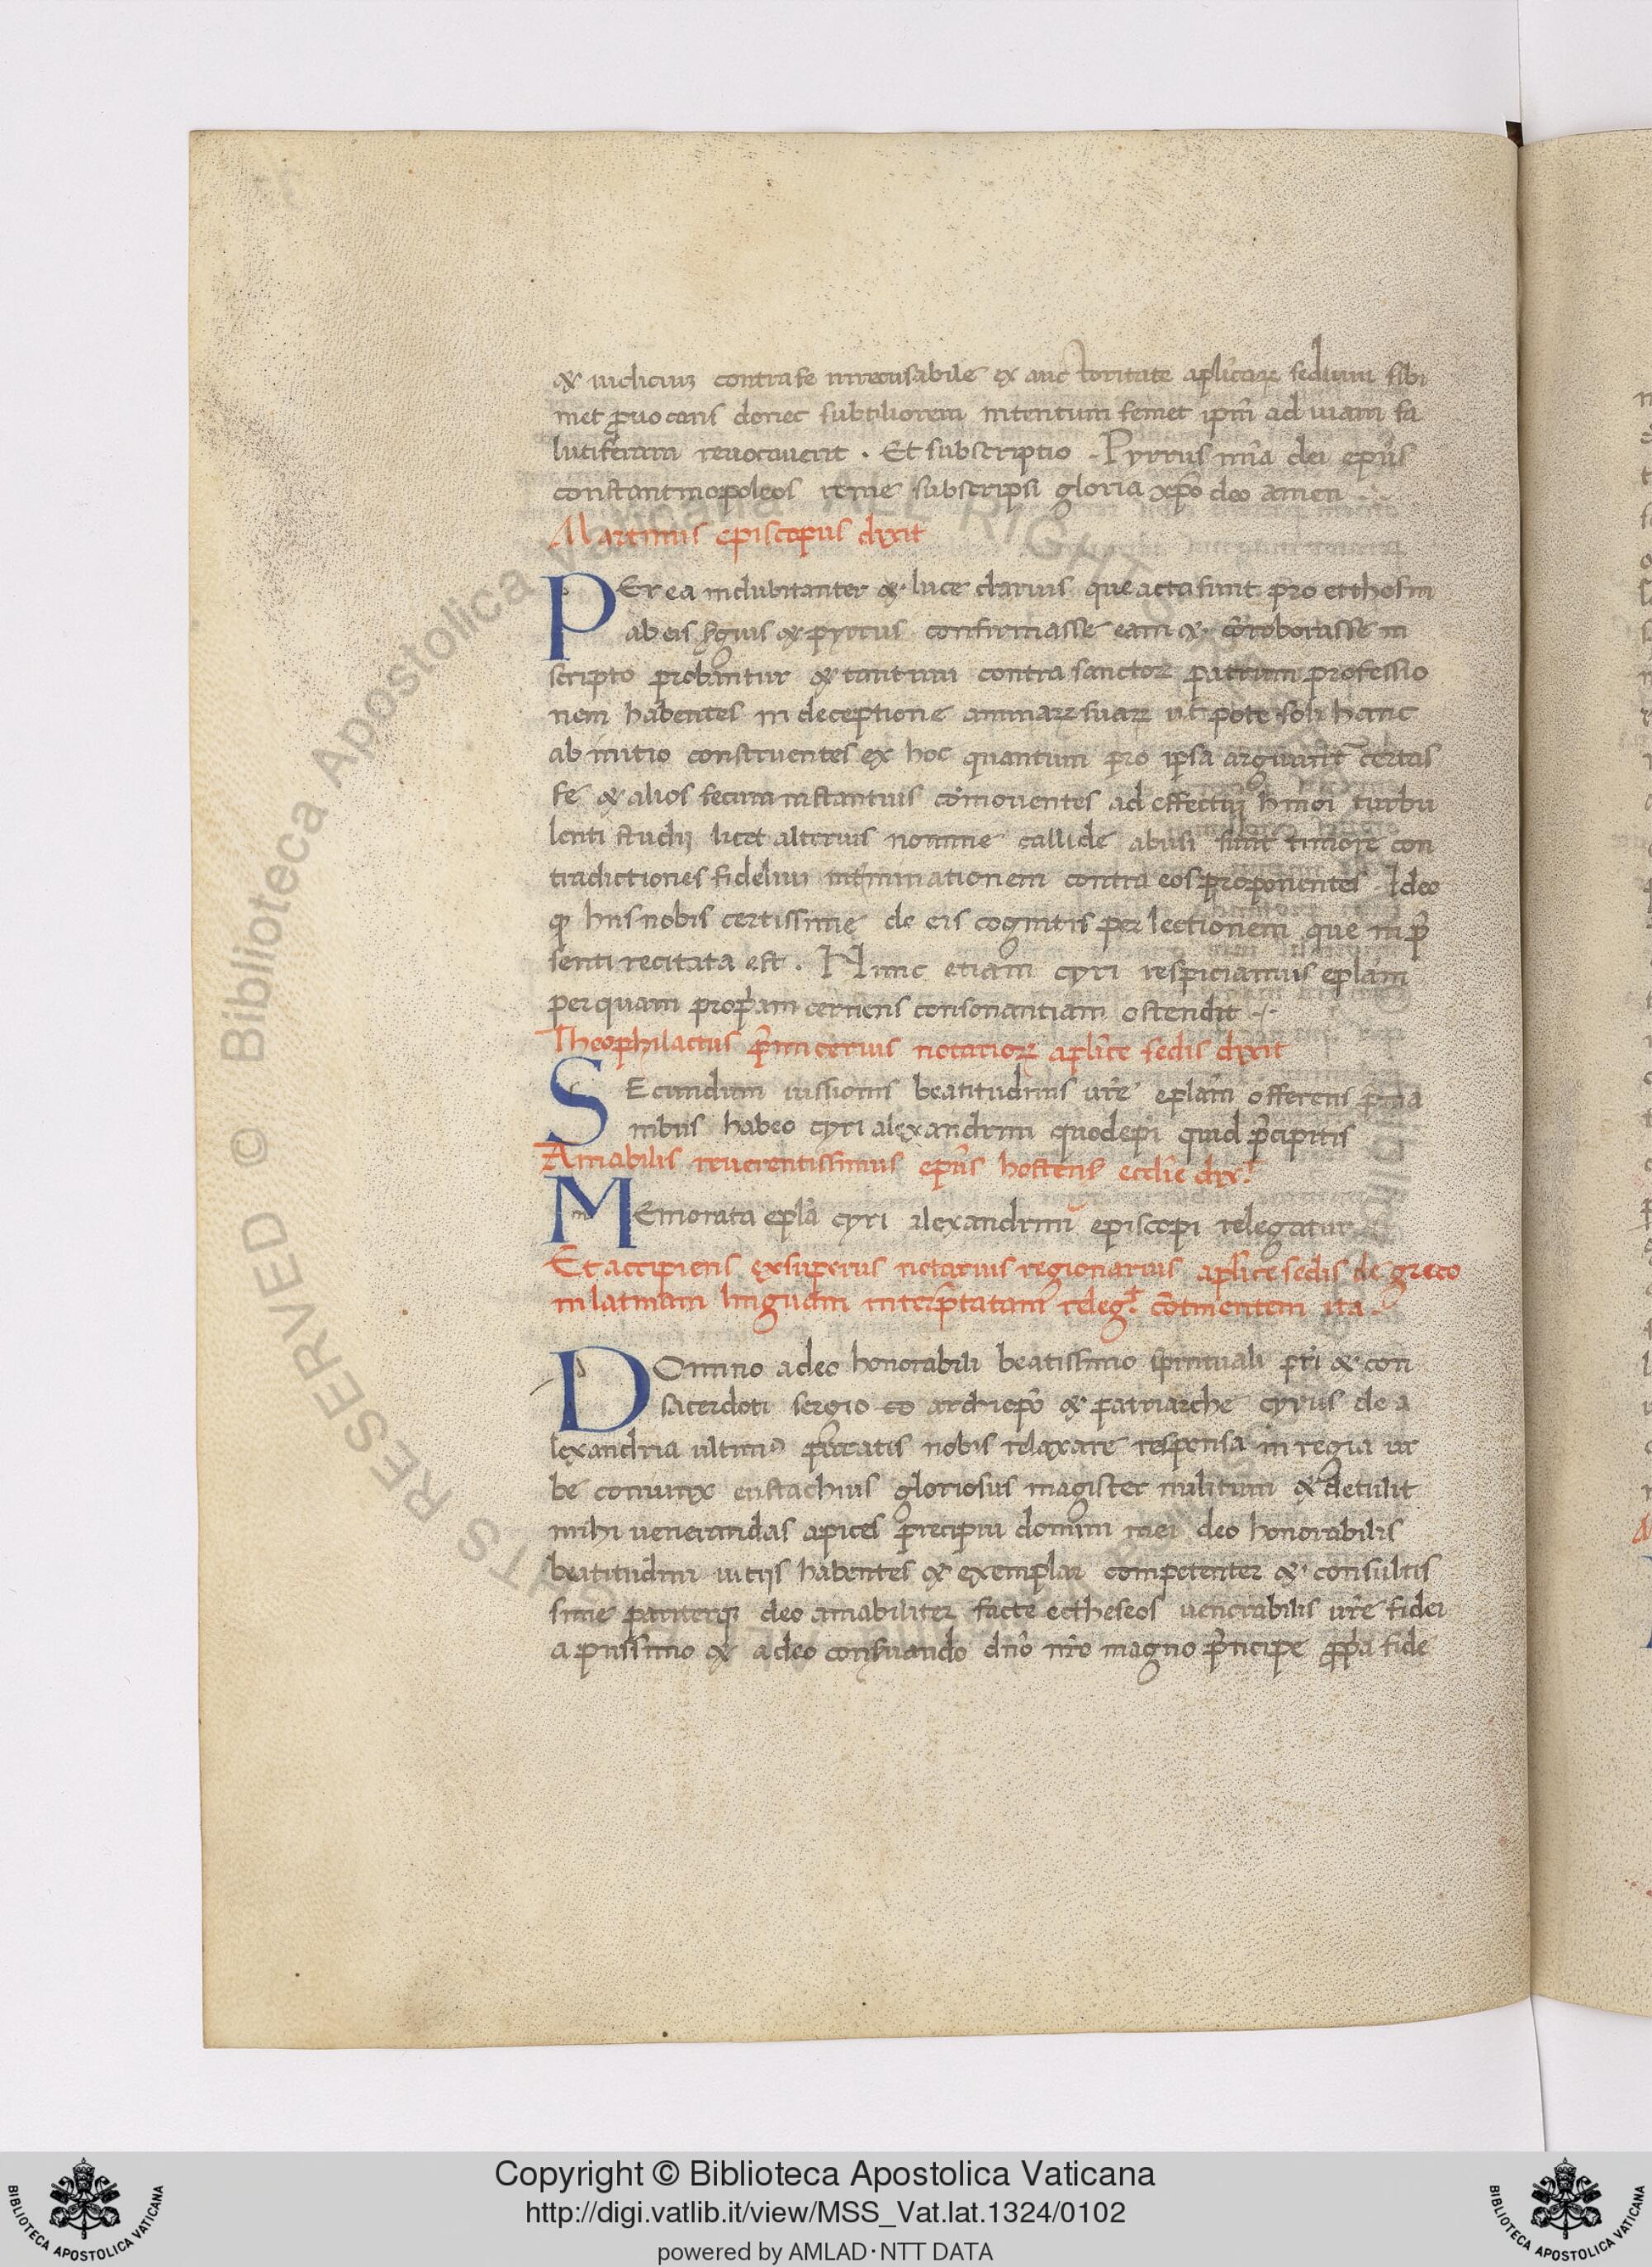 & iudiciuz contra se irrecusabile ex auctoritate aplicarꝝ sedium sibi
met ꝓuocans donec subtiliorem intentum semet ipm̄ ad uiam sa
lutiferam reuocauerit . Et subscriptio . Pyrrus mīa dei epūs
constantinopoleos rome subscripsi gloria xp̄o deo amen
Martinus episcopus dixit
PEr ea indubitanter & luce clarius que acta sunt pro ecthesin
ab eis & pyrrus confirmasse eam & corroborasse in
scripto probantur & tantum contra sanctoꝝ patrum professio
nem habentes in deceptione animarꝝ suarꝝ ut pote soli hanc
ab initio construentes ex hoc quantum pro ipsa arguunt certas
se & alios secum instantius cōmouentes ad effectū hmōi turbu
lenti studij licet alterius nomine callide abusi sunt timore con
tradictiones fidelium int̄minationem contra eos proponentes . Ideo
hiis nobis certissime de eis cognitis per lectionem que in p̄
senti recitata est . Nunc etiam cyri respiciamus eplam
per quam prop̄am cernens consonantiam ostendit
Theophilactus p̄micerius notarioꝝ aplice sedis dixit
SEcundum iussionis beatitudinis ur̄e eplam offerens p̄ ma
nibus habeo cyri alexandrini quod epi quid p̄cipitis
Amabilis reuerentissimus epūs hostens eccl̄ie dix.t
MEmorata epl̄a cyri alexandrini episcopi relegatur
Et accipiens exsuperius notarius regionarius apl̄ice sedis de greco
in latinam linguam interp̄tatam releg.t cōtinentem ita
DOmino a deo honorabili beatissimo spirituali fr̄i & con
sacerdoti sergio archiepō & patriarche cyrus de a
lexandria ultimo paratis nobis relaxare responsa in regia ur
be coniunx eustachius gloriosus magister militum & detulit
mihi uenerandas apices precipui domini mei deo honorabilis
beatitudini uitijs habentes & exemplar competenter & consultis
sime pariterq; deo amabiliter facte ectheseos uenerabilis ur̄e fidei
a piissimo & a deo conseruando dn̄o nr̄o magno p̄ncipe ꝓp̄a fide
© Biblioteca Apostolica Vaticana ALL RIGHTS RESERVED
Copyright © Biblioteca Apostolica Vaticana
http://digi.vatlib.it/view/MSS_Vat.lat.1324/0102
powered by AMLAD·NTT DATA
BIBLIOTECA APOSTOLICA VATICANA
BIBLIOTECA APOSTOLICA VATICANA